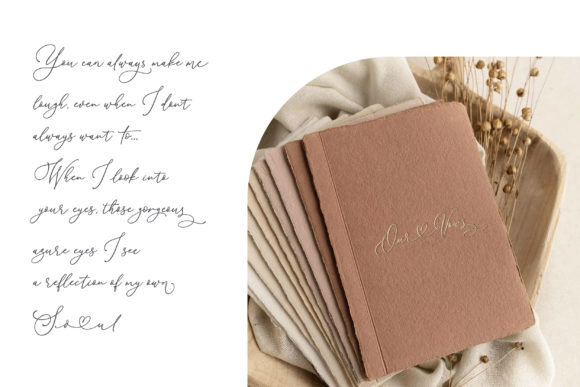 You can always make me
laugh, even when I don't
always want to...
When I look into
your eyes, those gorgeous
azure eyes I see
a reflection of my own
So♡ul
Our ♡ Vows